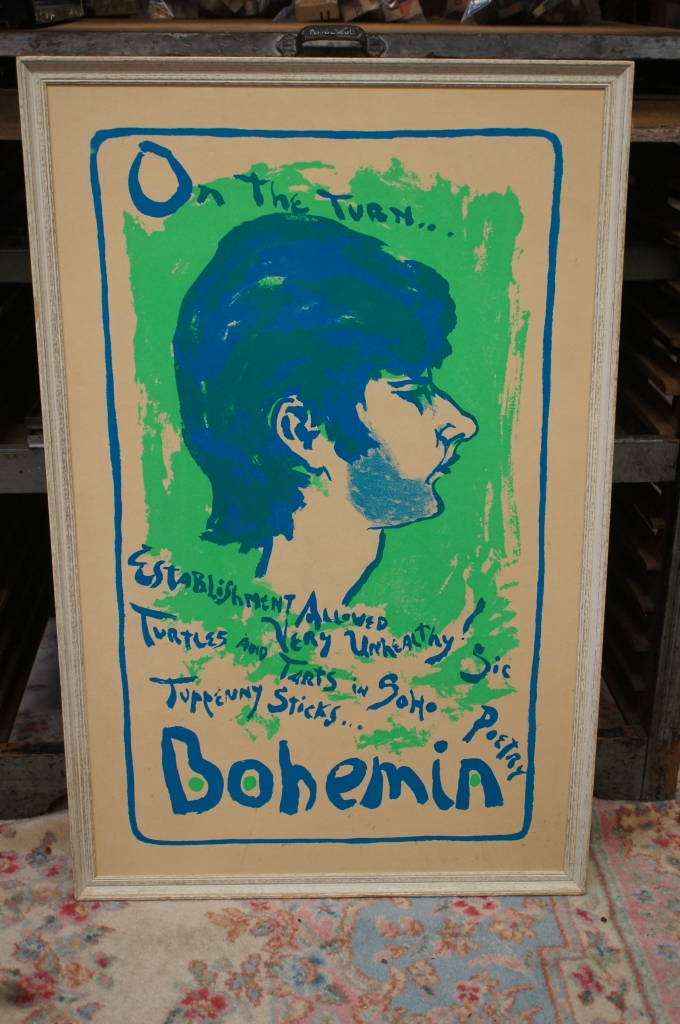 On The Turn...
Establishment Allowed
Turtles and Very Unhealthy!
Tarts in Soho
Tuppenny Sticks...
Sic
Poetry
Bohemia